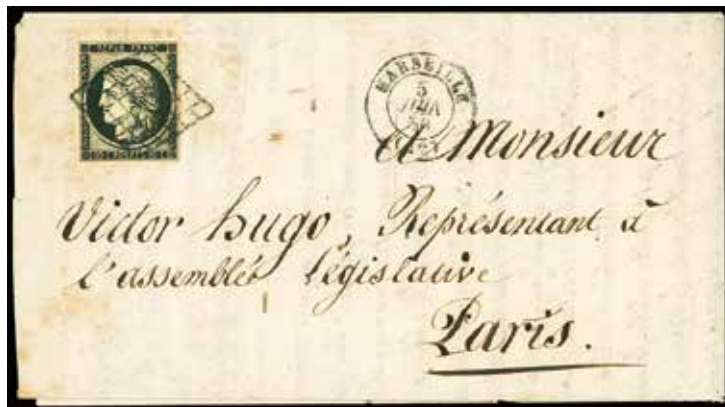 REPUB. FRANC.
MARSEILLE
5
A Monsieur
Victor hugo, Représentant à
l'assemblée Législative
Paris.